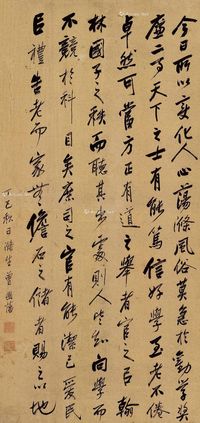 今日所以變化人心蕩滌風俗莫急於勸學獎
廉二事天下之士有能篤信好學至老不倦
卓然可當方正有道之舉者官之㠯翰
林國子之秩而聽其出處則人皆知向學而
不競於科目矣庶司之官有能潔己愛民
㠯禮告老而家無儋石之儲者賜之以地
丁巳秋日滌生曾國藩